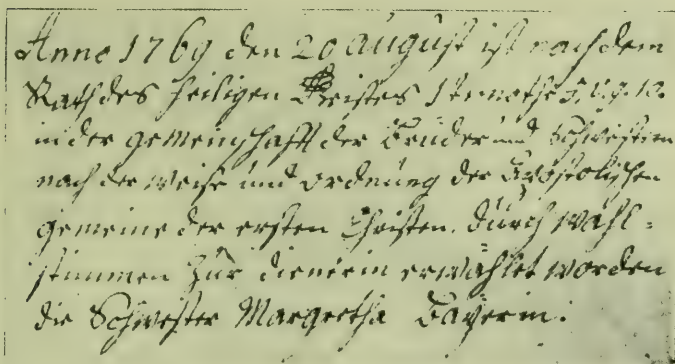 Anno 1769 den 20 august ist nach dem
Rath des heiligen Geistes 1 timothe 3, v. 9. 10.
in der gemeinschafft der Brüder und Schwestern
nach der weise und ordnung der Apostolischen
gemeine der ersten Christen. durch wahl=
stimmen zur dienerin erwählet worden
die Schwester Margretha Bayerin.